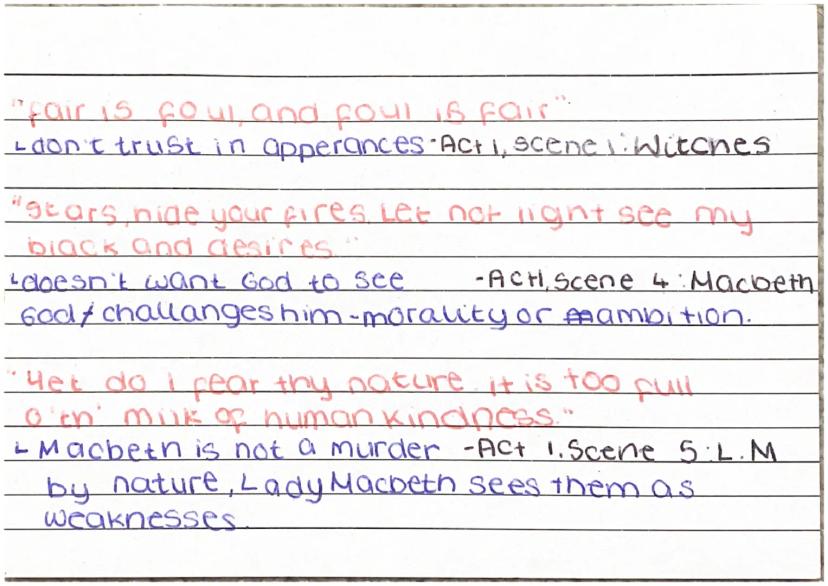 "fair is foul, and foul is fair"
↳don't trust in apperances-Act 1, scene 1: Witches
"stars, hide your fires. Let not light see my
black and desires"
↳doesn't want God to see -Act1, scene 4: Macbeth
God/challanges him-morality or ambition.
"Yet do I fear thy nature it is too full
o'th' milk of human kindness."
↳Macbeth is not a murder -Act 1, Scene 5: L.M
by nature, Lady Macbeth sees them as
weaknesses.